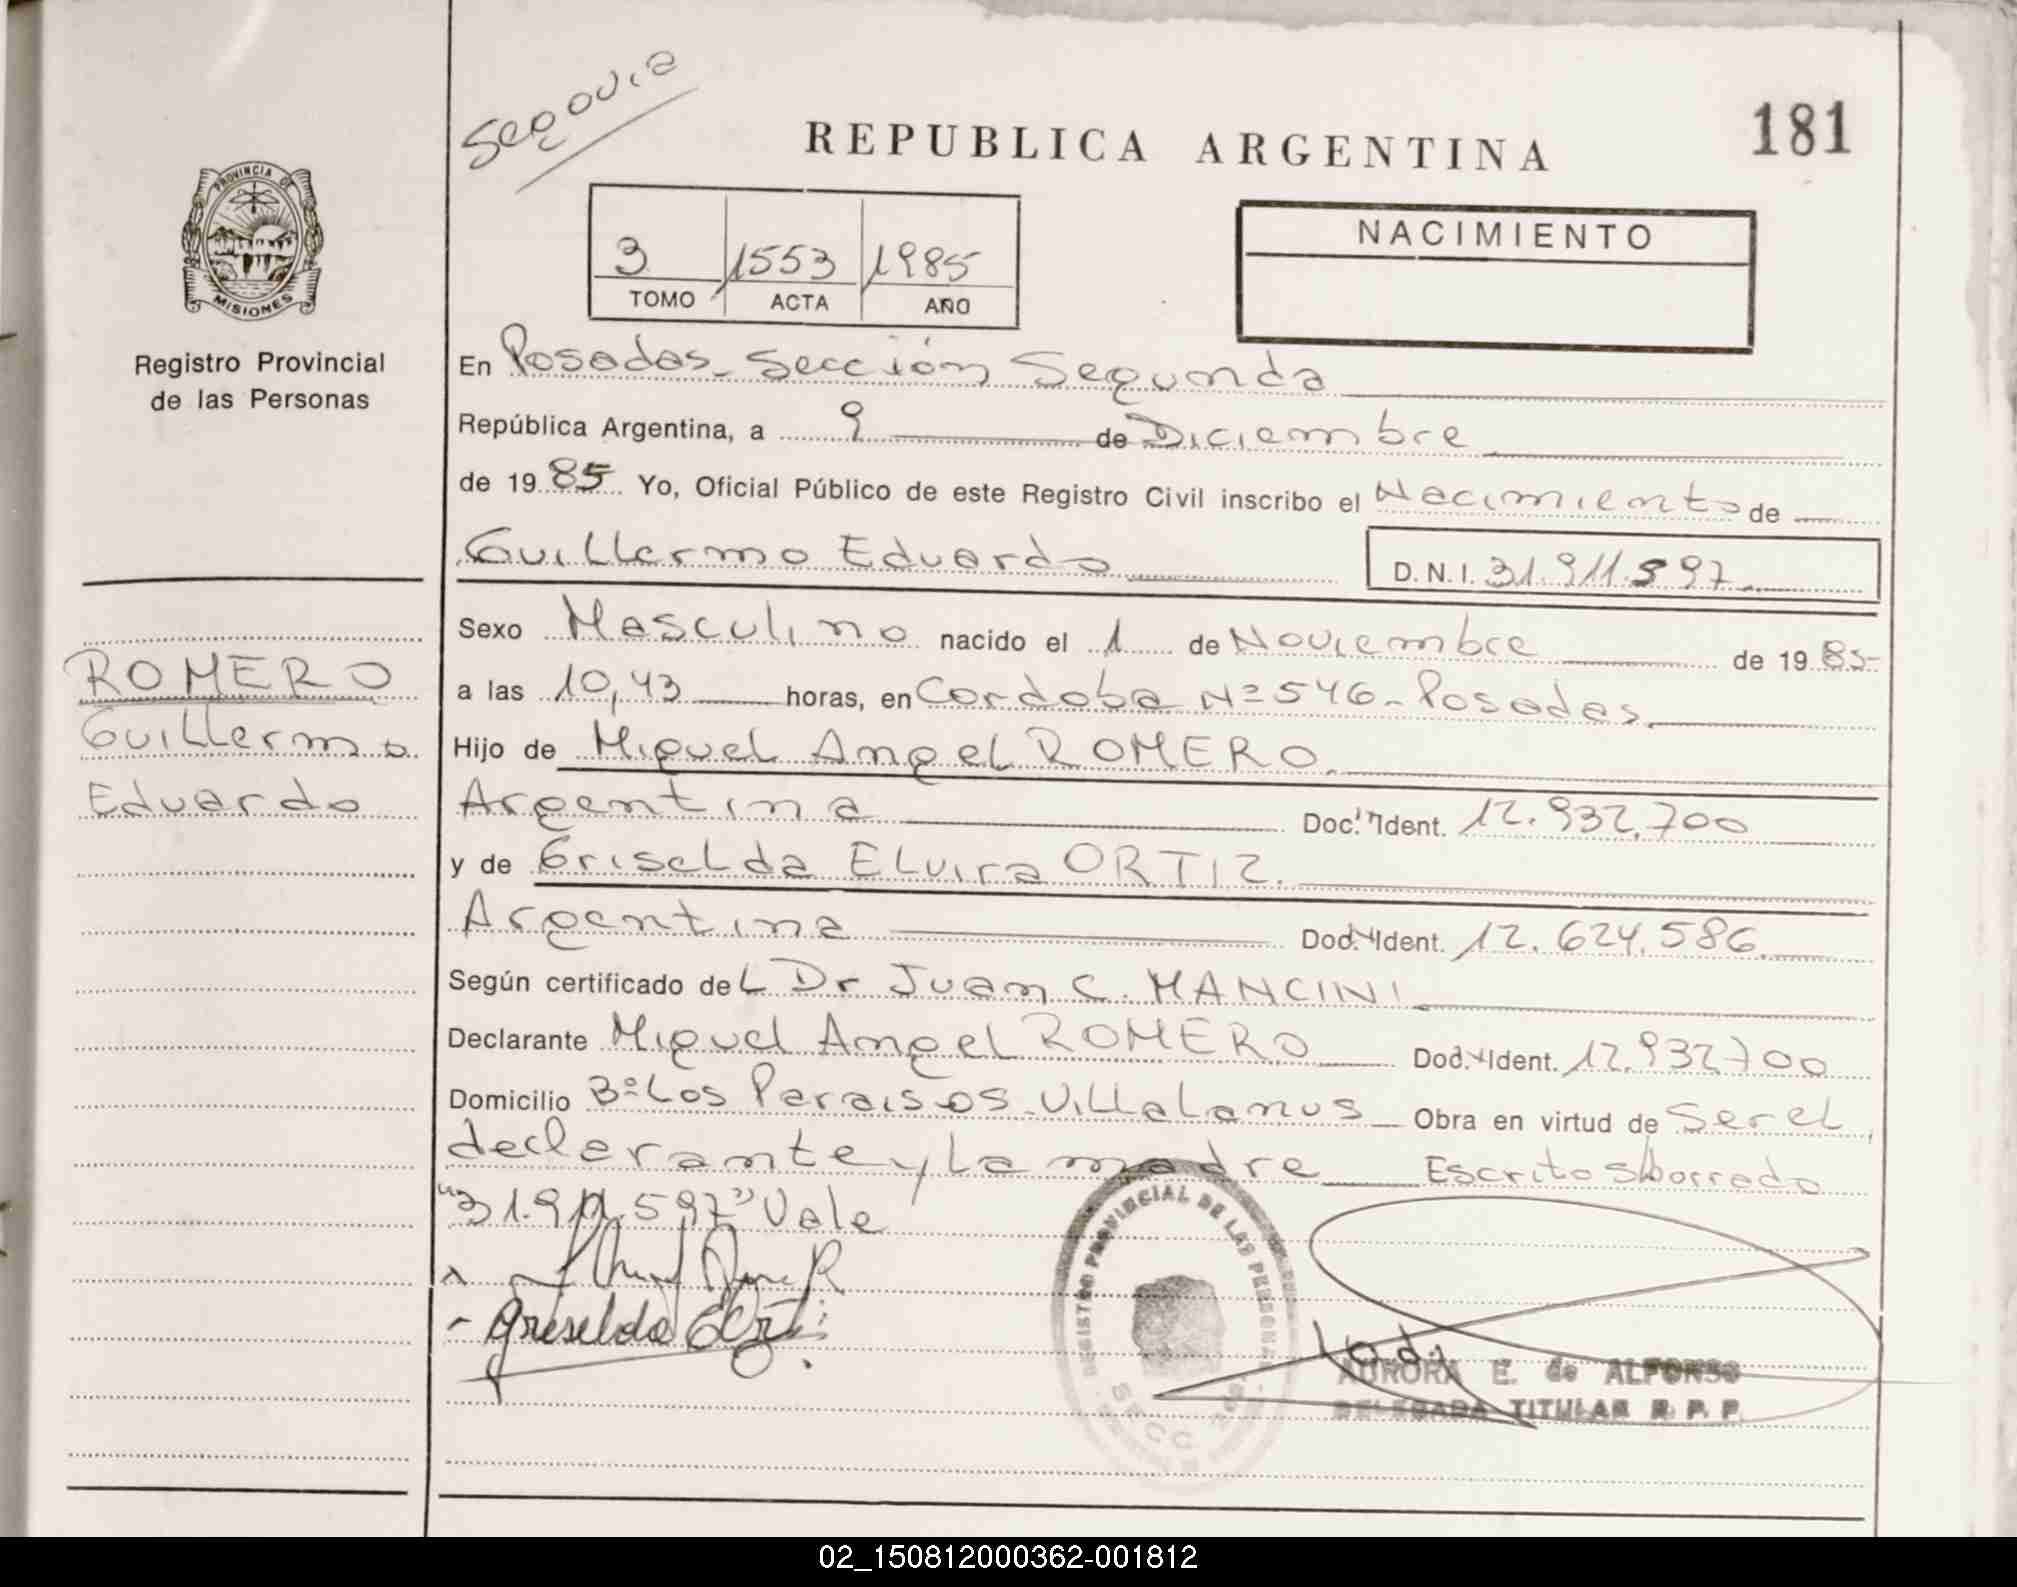 Segovia
REPUBLICA ARGENTINA
181
PROVINCIA DE
MISIONES
Registro Provincial
de las Personas
3 1553 1985
TOMO ACTA AÑO
NACIMIENTO
En Posadas - Sección Segunda
República Argentina, a 9 de Diciembre
de 1985 Yo, Oficial Público de este Registro Civil inscribo el Nacimiento de
Guillermo Eduardo D.N.I. 31.911.597
Sexo Masculino nacido el 1 de Noviembre de 1985-
ROMERO
Guillermo
Eduardo
a las 10,43 horas, en Cordoba Nº 546 - Posadas
Hijo de Miguel Angel ROMERO.
Argentina Doc. Ident. 12.932.700
y de Griselda Elvira ORTIZ.
Argentina Doc. Ident. 12.624.586
Según certificado del Dr Juan C. MANCINI
Declarante Miguel Angel ROMERO Doc. Ident. 12.932.700
Domicilio Bº Los Paraisos - Villa Lanus Obra en virtud de Ser el
declarante y la madre Escrito S/borrado
"31.911.597" Vale
Griselda E. Ortiz
REGISTRO PROVINCIAL DE LAS PERSONAS
SECC
AURORA E. de ALFONSO
DELEGADA TITULAR R. P. P.
02_150812000362-001812